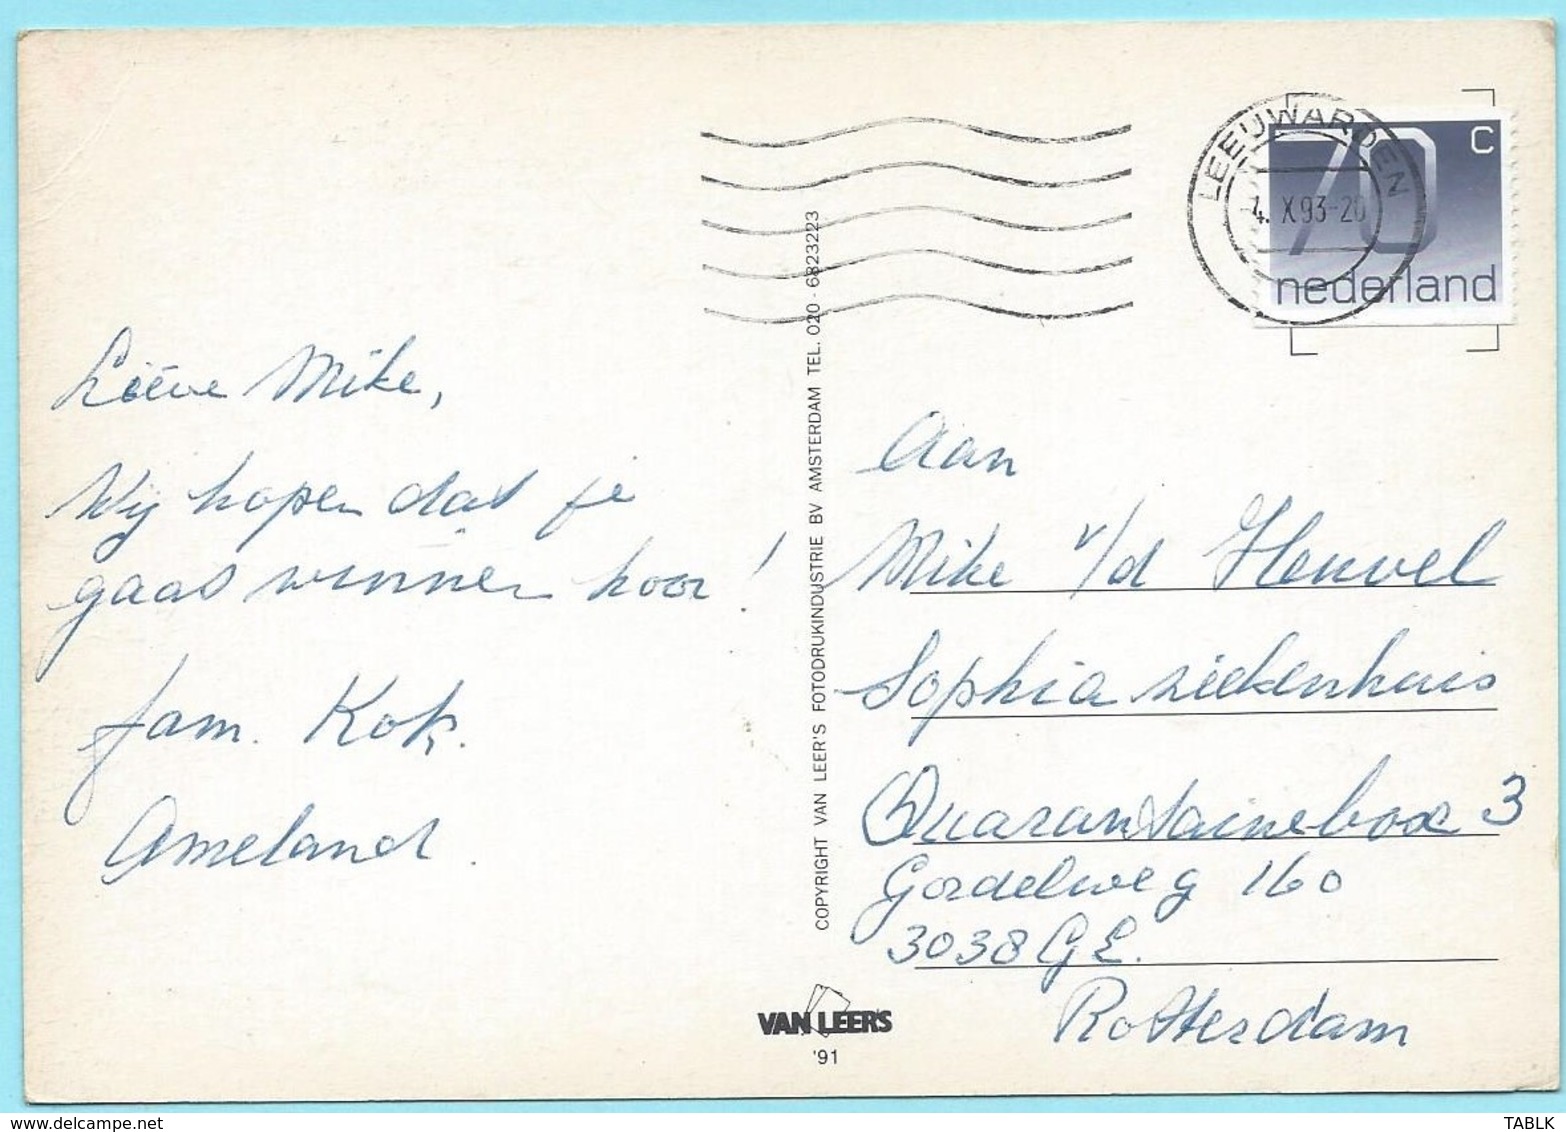 LEEUWARDEN
4. X.93-20
70 C
nederland
Lieve Mike,
Wij hopen dat je
gaat winnen hoor!
fam. Kok.
Ameland.
COPYRIGHT VAN LEER'S FOTODRUKINDUSTRIE BV AMSTERDAM TEL. 020 - 6823223
VAN LEER'S
'91
Aan
Mike v/d Heuvel
Sophia ziekenhuis
Quarantainebox 3
Gordelweg 160
3038 GE.
Rotterdam
www.delcampe.net
TABLK